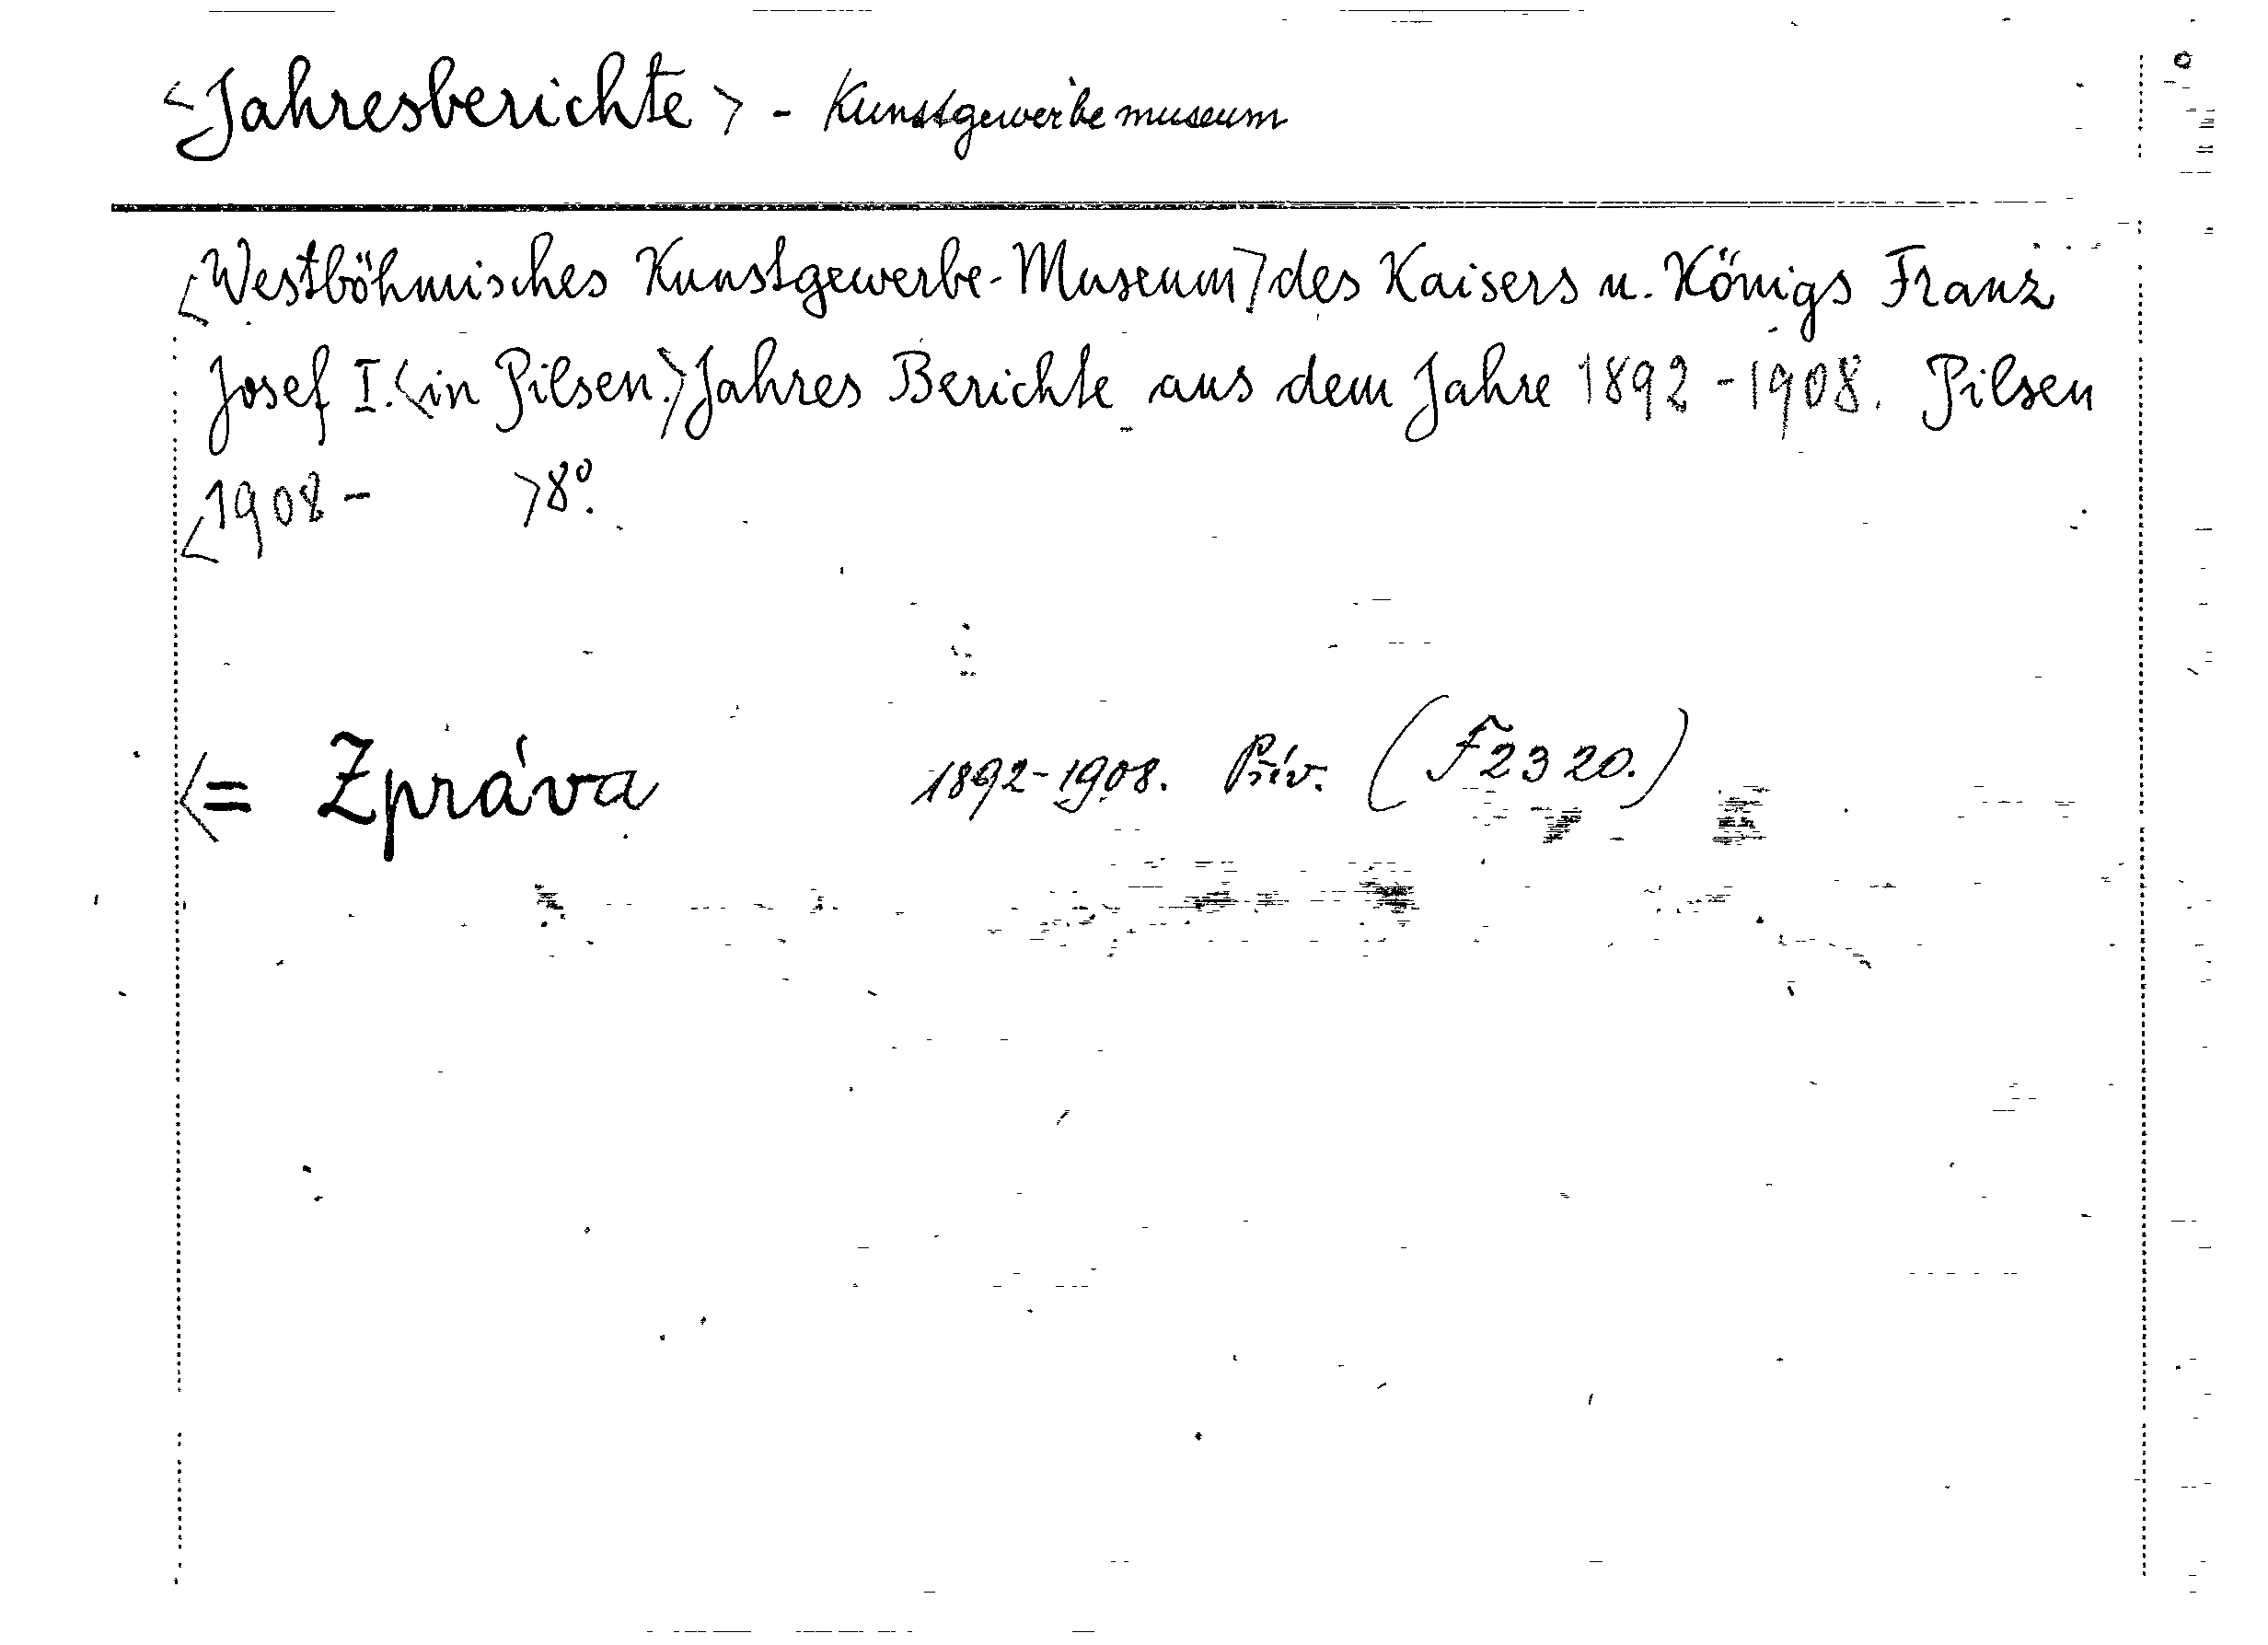 <Jahresberichte> - Kunstgewerbemuseum
<Westböhmisches Kunstgewerbe-Museum> des Kaisers u. Königs Franz
Josef I. <in Pilsen.> Jahres Berichte aus dem Jahre 1892-1908. Pilsen
<1908- >8°.
<= Zpráva 1892-1908. Přív. (F2320.)